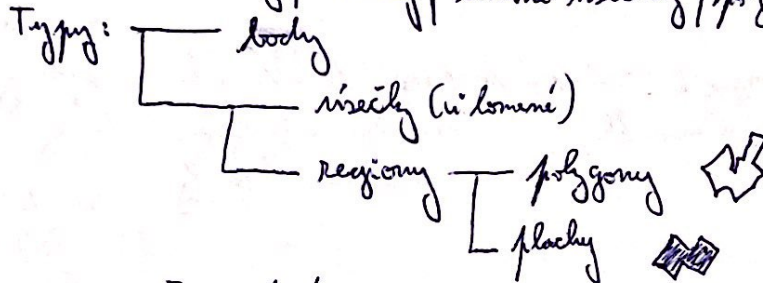 Typy: body
úsečky (i lomené)
regiony polygony
plochy